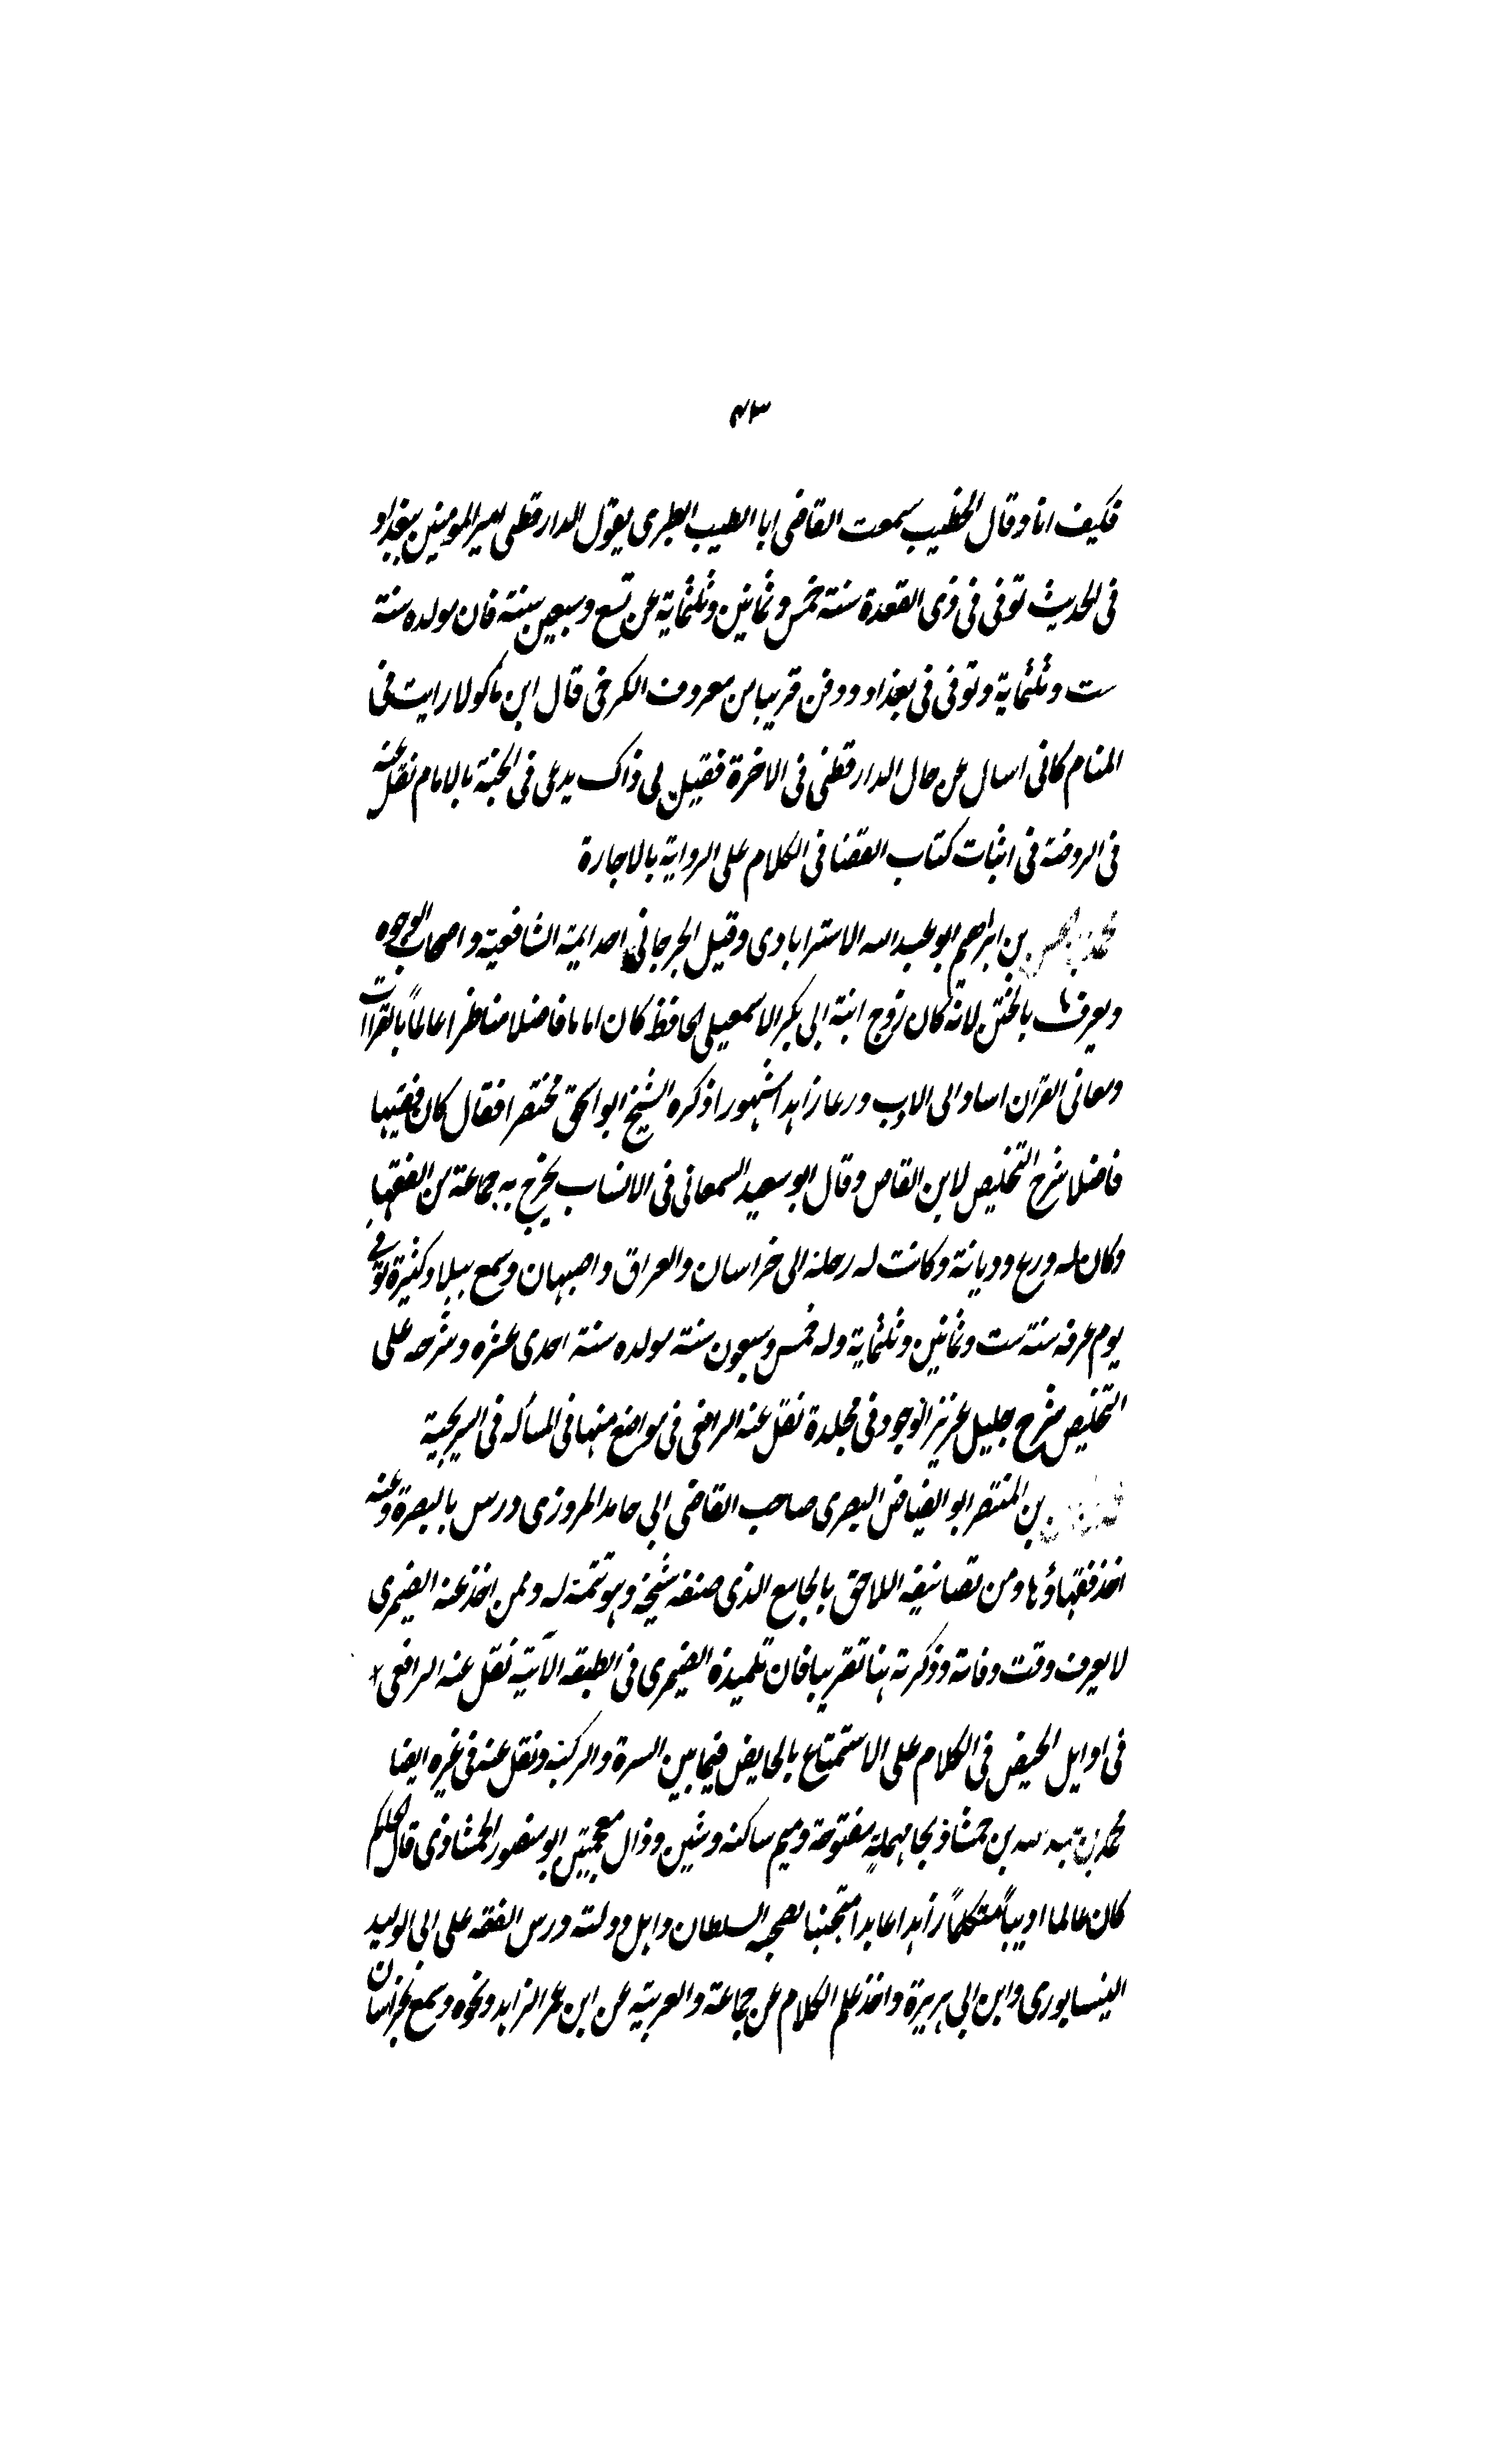 ٤٣
فكيف انا وقال الخطيب سمعت القاضى ابا الطيب الطبرى يقول الدارقطنى امير المومنين ببغداد
فى الحديث توفى فى ذى القعدة سنة خمس وثمانين وثلثماية عن تسع وسبعين سنة فان مولده سنة
ست وثلثماية وتوفى فى بغداد ودفن قريبا من معروف الكرخى قال ابن ماكولا رايت فى
المنام كانى اسال عن حال الدارقطنى فى الاخرة فقيل لى ذاك يدعى فى الجنة بالامام نقل عنه
فى الروضة فى اثبات كتاب القضا فى الكلام على الرواية بالاجازة
محمد بن الحسن بن ابراهيم ابو عبد الله الاستراباذى وقيل الجرجانى احد ايمة الشافعية و اصحاب الوجوه
ويعرف بالختن لانه كان زوج ابنة ابى بكر الاسمعيلى الحافظ كان اماما فاضلا مناظرا عالماً بالقراات
ومعانى القرآن اسا والى الادب ورعا زاهدا مشهورا ذكره الشيخ ابو اسحق مختصرا فقال كان فقيها
فاضلا شرح التخليص لابن القاص وقال ابو سعيد السمعانى فى الانساب يخرج به جماعة من الفقها
وكان له ورع وديانة وكانت له رحلة الى خراسان والعراق واصبهان وسمع ببلاد كثيرة توفى
يوم عرفه سنة ست وثمانين وثلثماية وله خمس وسبعون سنة مولده سنة احدى عشره وشرحه على
التخليص شرح جليل عزيز الوجود فى مجلدة نقل عنه الرافعى فى مواضع منها فى المسأله فى السريجية
بن المنتصر ابو الفياض البصرى صاحب القاضى ابى حامد المروزى درس بالبصرة وعنه
اخذ فقهاؤها ومن تصانيفه اللاحق بالجامع الذى صنفه شيخه وهو تتمة له وممن اخذ عنه الصيمرى
لا يعرف وقت وفاته وذكرته هنا تقريبا فان تلميذه الصيمرى فى الطبقه الآتية نقل عنه الرافعى
فى اوايل الحيض فى الكلام على الاستمتاع بالحايض فيما بين السرة والركبة ونقل عنه فى غيره ايضا
محمد بن عبد الله بن حمشاذ بحا مهملة مفتوحة وميم ساكنه وشين وذال معجمتين ابو منصور الحمشاذى قال الحاكم
كان عالما اديباً متكلماً زاهدا عابدا متجنبا لصحبه السلطان واهل دولته درس الفقه على ابى الوليد
النيسابورى وابن ابى هريرة واخذ علم الكلام عن جماعة والعربية عن ابن عمر الزاهد ونحوه وسمع بخراسان